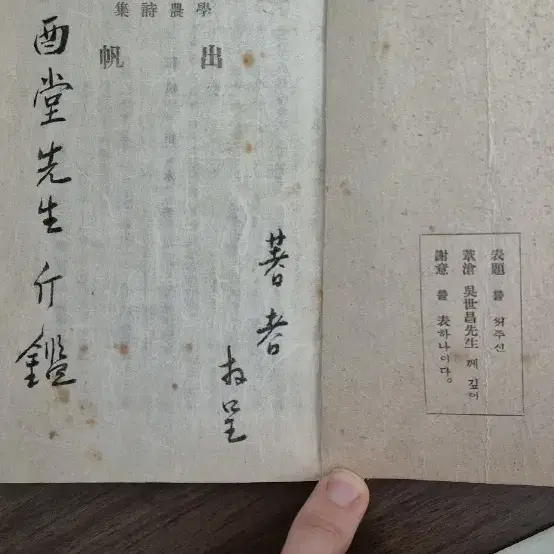 表題 를 써주신
葦滄 吳世昌先生 께 깊이
謝意 를 表하나이다。
學農詩集
出帆
著者
拜呈
酉堂先生斤鑑